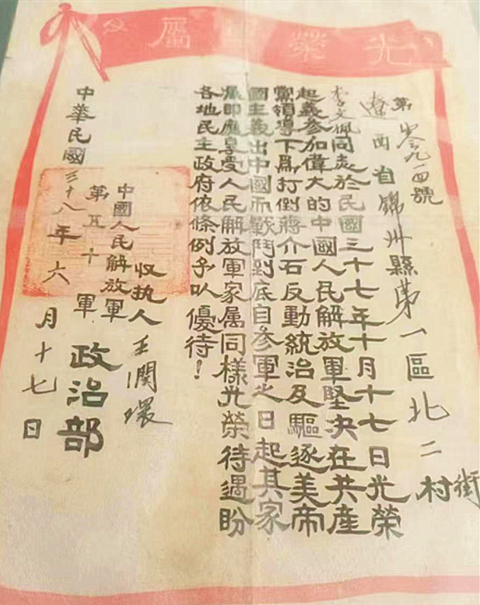 光榮屬
第號
遼西省錦州縣第一區北二村街
李文同志於民國三十七年十月十七日光榮
起義參加偉大的中國人民解放軍堅決在共產
黨領導下爲打倒蔣介石反動統治及驅逐美帝
國主義出中國而戰鬥到底自參軍之日起其家
属即應享受人民解放軍家属同樣光榮待遇盼
各地民主政府依條例予以優待！
收执人王環
中國人民解放軍
第五十軍 政治部
中華民國三十八年六月十七日